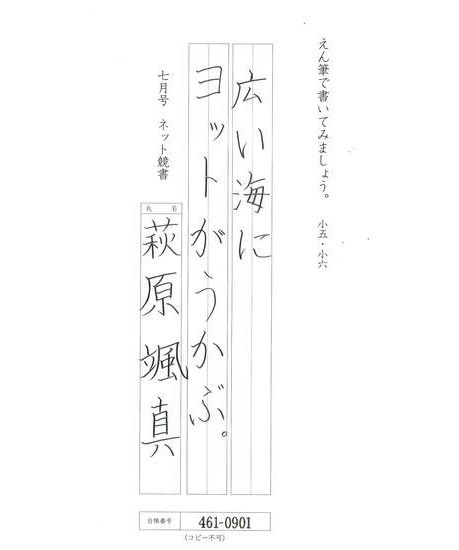 えん筆で書いてみましょう。 小五・小六
広い海に
ヨットがうかぶ。
七月号 ネット競書
氏名
萩原颯真
台帳番号 461-0901
(コピー不可)